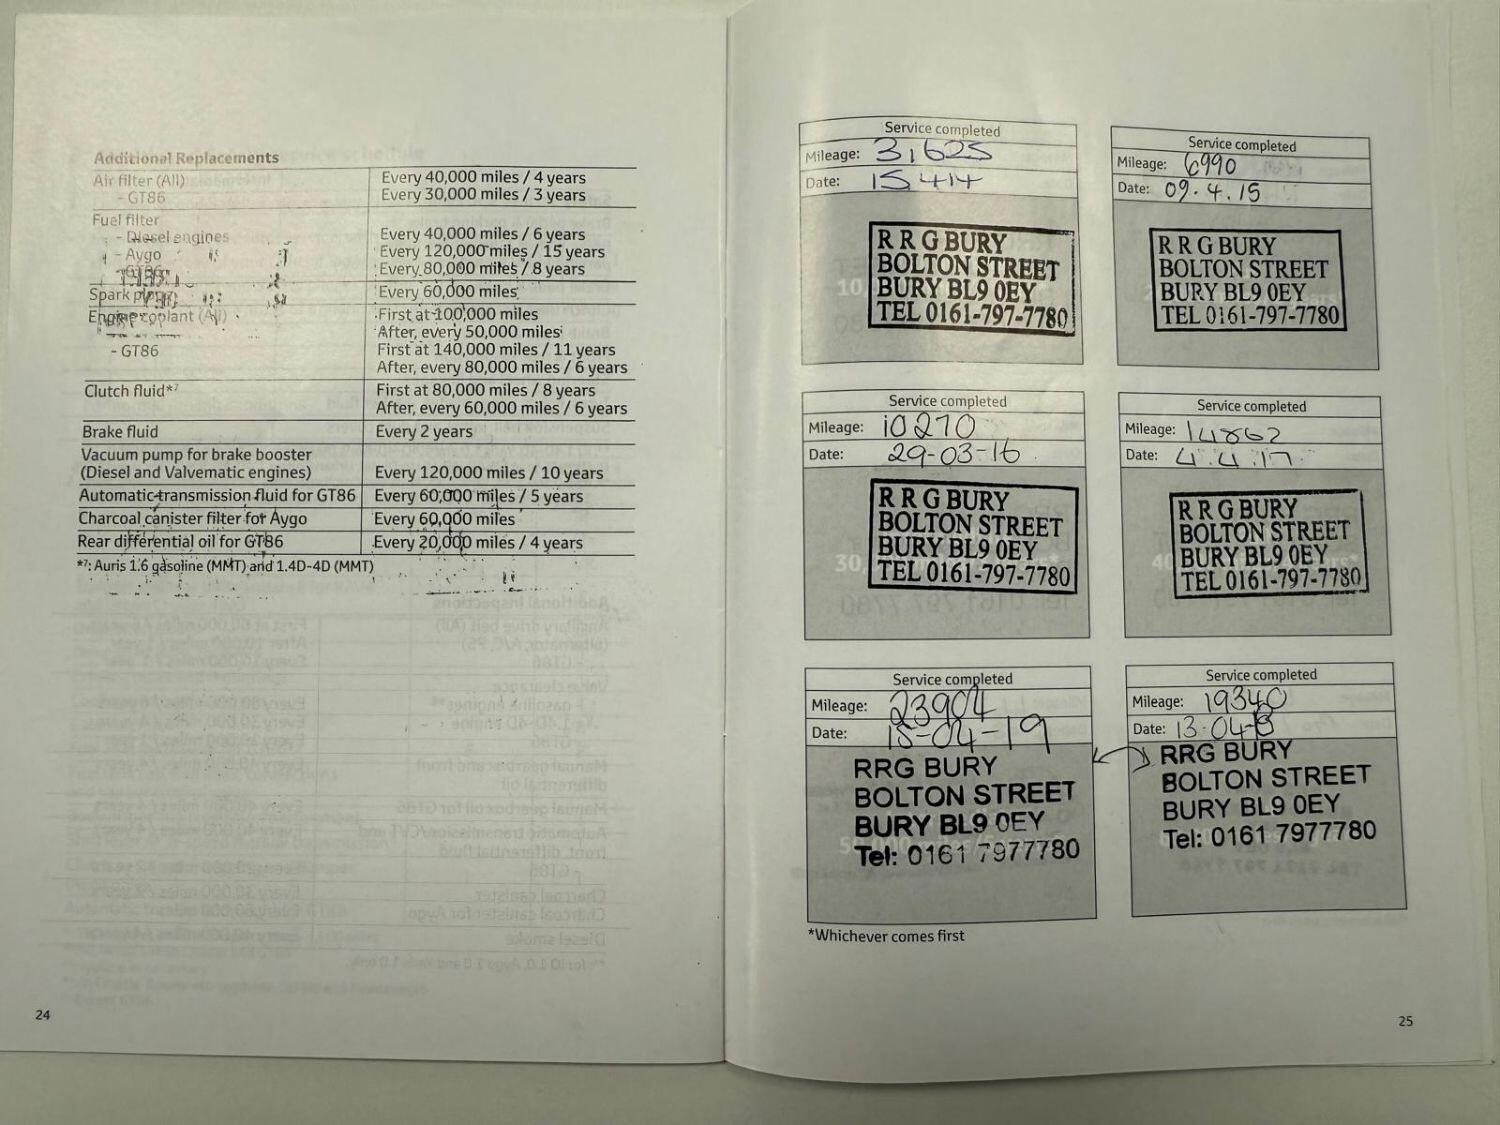 Additional Replacements
Air filter (All) Every 40,000 miles / 4 years
- GT86 Every 30,000 miles / 3 years
Fuel filter
- Diesel engines Every 40,000 miles / 6 years
- Aygo Every 120,000 miles / 15 years
- GT86 Every 80,000 miles / 8 years
Spark plug Every 60,000 miles
Engine coolant (All) First at 100,000 miles
After, every 50,000 miles
- GT86 First at 140,000 miles / 11 years
After, every 80,000 miles / 6 years
Clutch fluid*7 First at 80,000 miles / 8 years
After, every 60,000 miles / 6 years
Brake fluid Every 2 years
Vacuum pump for brake booster
(Diesel and Valvematic engines) Every 120,000 miles / 10 years
Automatic transmission fluid for GT86 Every 60,000 miles / 5 years
Charcoal canister filter for Aygo Every 60,000 miles
Rear differential oil for GT86 Every 20,000 miles / 4 years
*7: Auris 1.6 gasoline (MMT) and 1.4D-4D (MMT)
24
Service completed
Mileage: 31625
Date: 15.4.14
R R G BURY
BOLTON STREET
BURY BL9 0EY
TEL 0161-797-7780
Service completed
Mileage: 6990
Date: 09.4.15
R R G BURY
BOLTON STREET
BURY BL9 0EY
TEL 0161-797-7780
Service completed
Mileage: 10270
Date: 29-03-16
R R G BURY
BOLTON STREET
BURY BL9 0EY
TEL 0161-797-7780
Service completed
Mileage: 14862
Date: 4.4.17
R R G BURY
BOLTON STREET
BURY BL9 0EY
TEL 0161-797-7780
Service completed
Mileage: 23904
Date: 15-04-19
RRG BURY
BOLTON STREET
BURY BL9 0EY
Tel: 0161 7977780
Service completed
Mileage: 19340
Date: 13.04.18
RRG BURY
BOLTON STREET
BURY BL9 0EY
Tel: 0161 7977780
*Whichever comes first
25